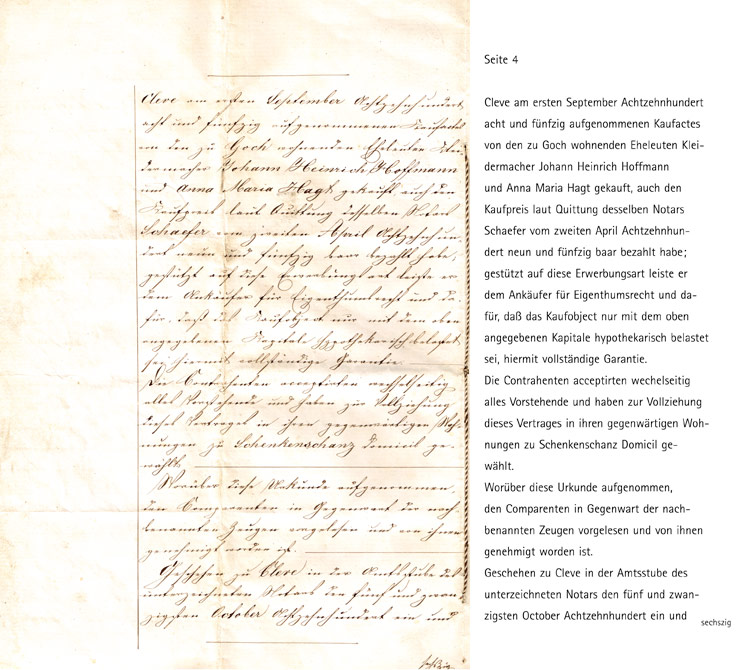 Cleve am ersten September Achtzehnhundert
acht und fünfzig aufgenommenen Kaufactes
von den zu Goch wohnenden Eheleuten Klei-
dermacher Johann Heinrich Hoffmann
und Anna Maria Hagt gekauft, auch den
Kaufpreis laut Quittung desselben Notars
Schaefer vom zweiten April Achtzehnhun-
dert neun und fünfzig baar bezahlt habe;
gestützt auf diese Erwerbungsart leiste er
dem Ankäufer für Eigenthumsrecht und da-
für, daß das Kaufobject nur mit dem oben
angegebenen Kapitale hypothekarisch belastet
sei, hiermit vollständige Garantie.
Die Contrahenten acceptirten wechselseitig
alles Vorstehende und haben zur Vollziehung
dieses Vertrages in ihren gegenwärtigen Woh-
nungen zu Schenkenschanz Domicil ge-
wählt.
Worüber diese Urkunde aufgenommen,
den Comparenten in Gegenwart der nach-
benannten Zeugen vorgelesen und von ihnen
genehmigt worden ist.
Geschehen zu Cleve in der Amtsstube des
unterzeichneten Notars den fünf und zwan-
zigsten October Achtzehnhundert ein und
sechszig
Seite 4
Cleve am ersten September Achtzehnhundert
acht und fünfzig aufgenommenen Kaufactes
von den zu Goch wohnenden Eheleuten Klei-
dermacher Johann Heinrich Hoffmann
und Anna Maria Hagt gekauft, auch den
Kaufpreis laut Quittung desselben Notars
Schaefer vom zweiten April Achtzehnhun-
dert neun und fünfzig baar bezahlt habe;
gestützt auf diese Erwerbungsart leiste er
dem Ankäufer für Eigenthumsrecht und da-
für, daß das Kaufobject nur mit dem oben
angegebenen Kapitale hypothekarisch belastet
sei, hiermit vollständige Garantie.
Die Contrahenten acceptirten wechelseitig
alles Vorstehende und haben zur Vollziehung
dieses Vertrages in ihren gegenwärtigen Woh-
nungen zu Schenkenschanz Domicil ge-
wählt.
Worüber diese Urkunde aufgenommen,
den Comparenten in Gegenwart der nach-
benannten Zeugen vorgelesen und von ihnen
genehmigt worden ist.
Geschehen zu Cleve in der Amtsstube des
unterzeichneten Notars den fünf und zwan-
zigsten October Achtzehnhundert ein und
sechszig